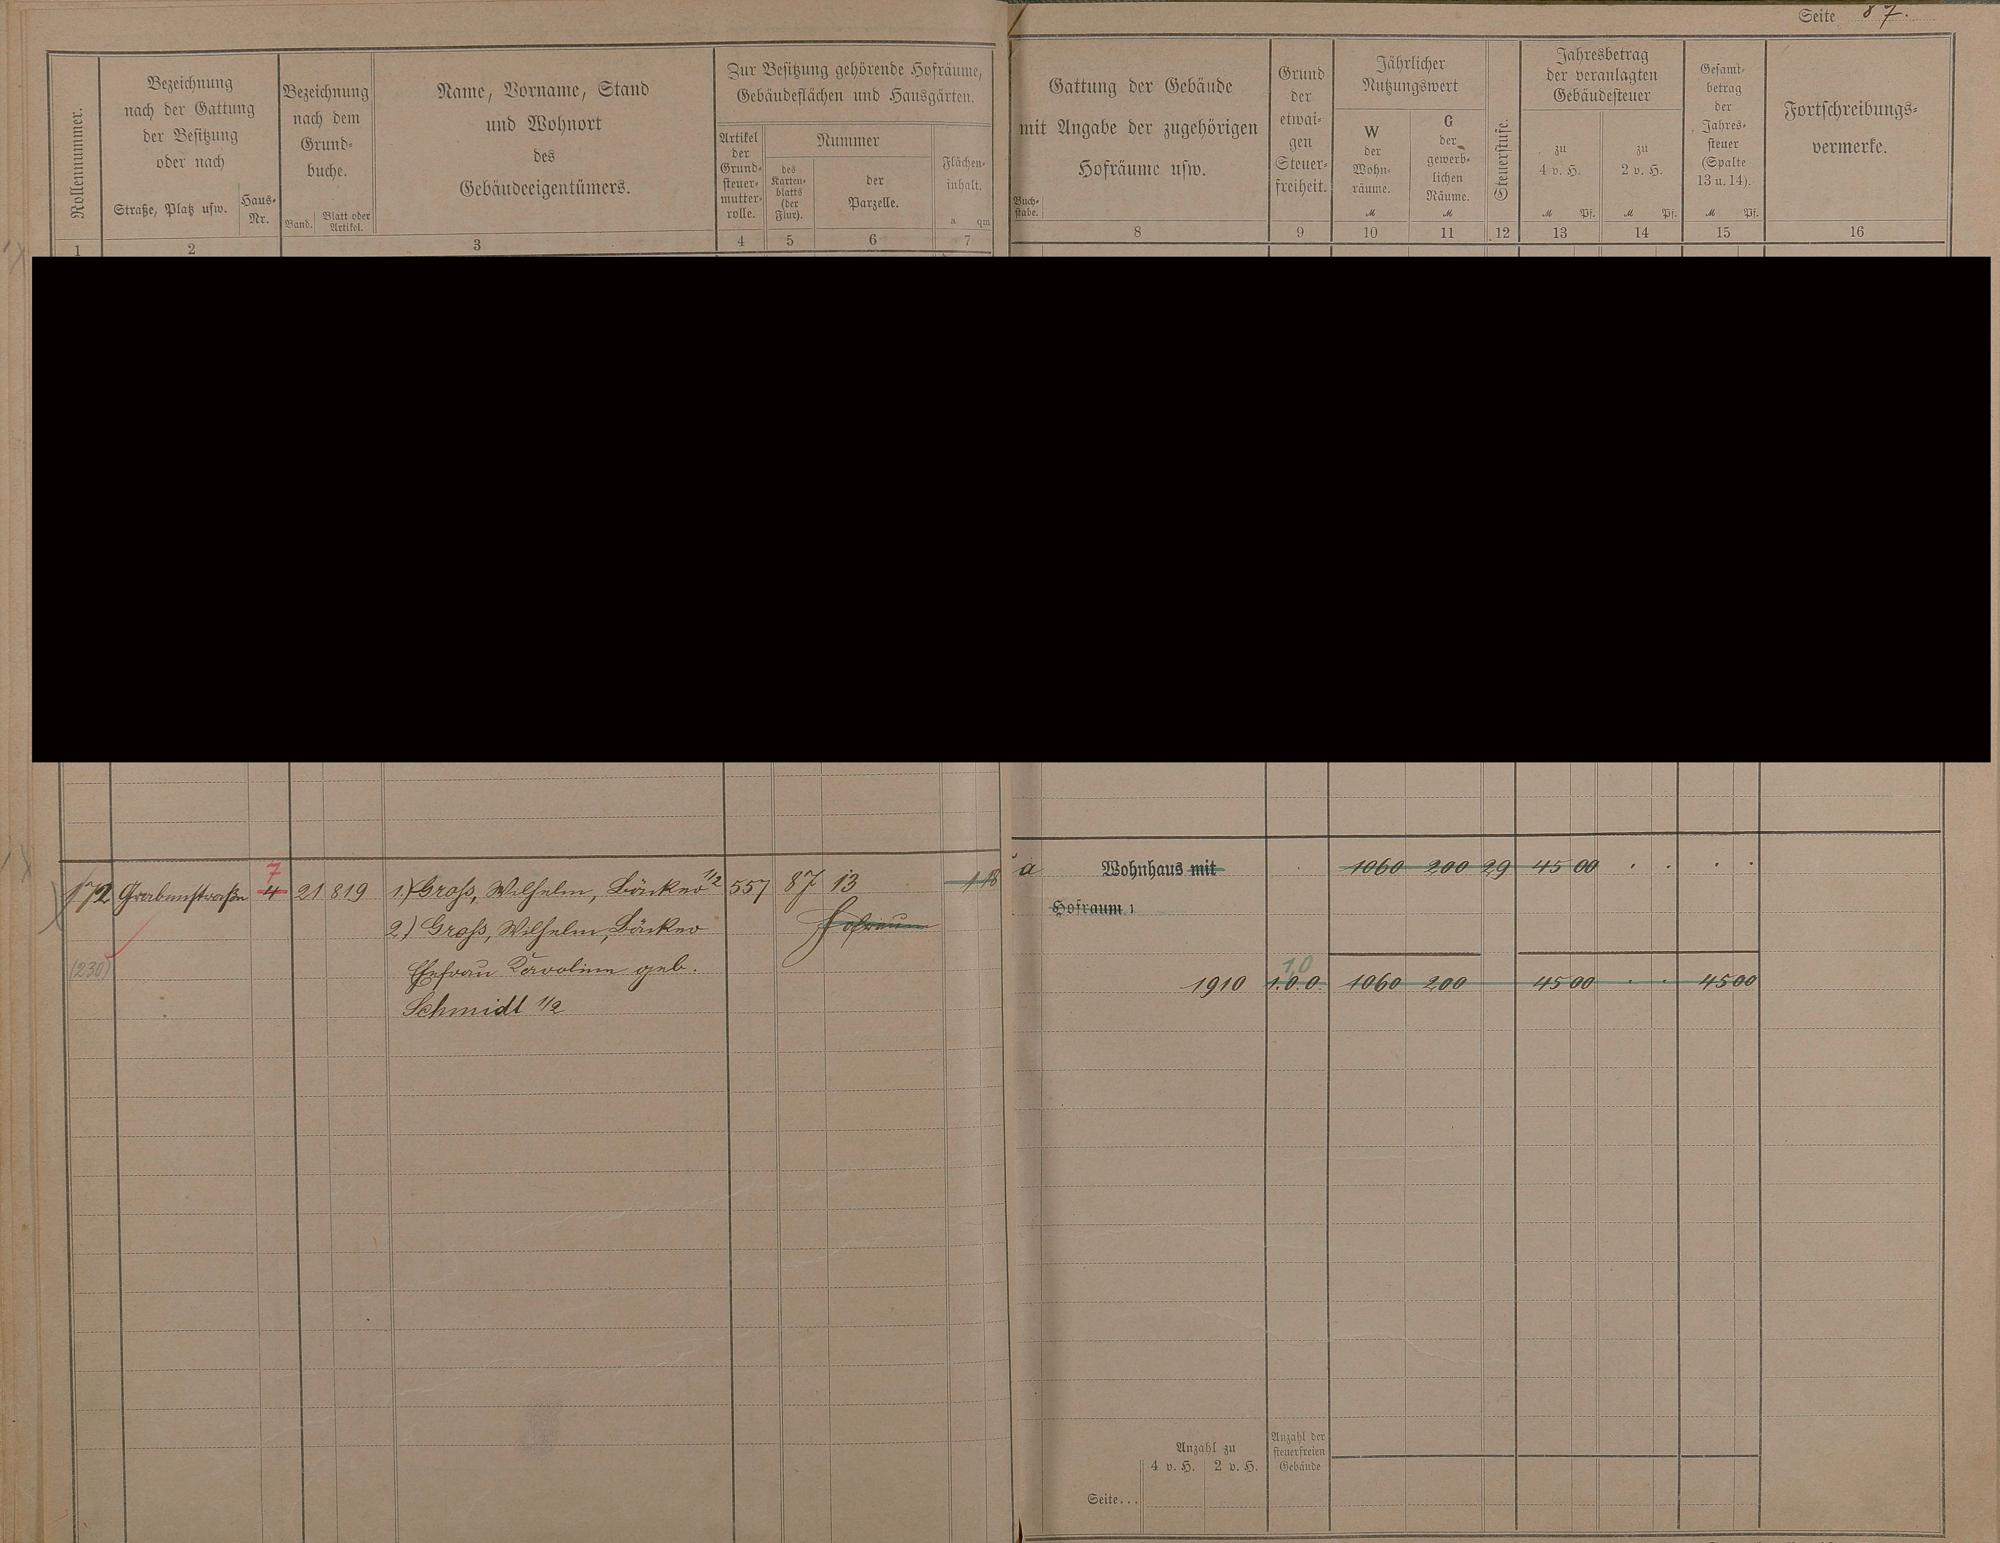 Seite 87.
Rollennummer.
Bezeichnung
nach der Gattung
der Besitzung
oder nach
Straße, Platz usw.
Haus-
Nr.
Bezeichnung
nach dem
Grund-
buche.
Band.
Blatt oder
Artikel.
Name, Vorname, Stand
und Wohnort
des
Gebäudeeigentümers.
Zur Besitzung gehörende Hofräume,
Gebäudeflächen und Hausgärten.
Artikel
der
Grund-
steuer-
mutter-
rolle.
Nummer
des
Karten-
blatts
(der
Flur).
der
Parzelle.
Flächen-
inhalt.
a qm
Gattung der Gebäude
mit Angabe der zugehörigen
Hofräume usw.
Buch-
stabe.
Grund
der
etwai-
gen
Steuer-
freiheit.
Jährlicher
Nutzungswert
W
der
Wohn-
räume.
M
G
der
gewerb-
lichen
Räume.
M
Steuerstufe.
Jahresbetrag
der veranlagten
Gebäudesteuer
zu
4 v. H.
M Pf.
zu
2 v. H.
M Pf.
Gesamt-
betrag
der
Jahres-
steuer
(Spalte
13 u. 14).
M Pf.
Fortschreibungs-
vermerke.
1 2 3 4 5 6 7 8 9 10 11 12 13 14 15 16
7
172 Grabenstraße 4 21 819 1.) Groß, Wilhelm, Bäcker 1/2 557 87 13 1 18 a Wohnhaus mit 1060 200 29 45 00
2.) Groß, Wilhelm, Bäcker Hofraum Hofraum 1
(230) Ehefrau Karoline geb.
10
1910 1.0.0. 1060 200 45 00 45 00
Schmidt 1/2
Anzahl zu
4 v. H. 2 v. H.
Anzahl der
steuerfreien
Gebäude
Seite...